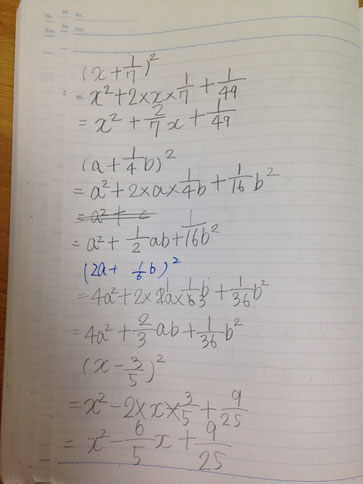 No.
Date
(x+1/7)²
=x²+2×x×1/7+1/49
=x²+2/7x+1/49
(a+1/4b)²
=a²+2×a×1/4b+1/16b²
=a²+1/2ab+1/16b²
(2a+1/6b)²
=4a²+2×2a×1/6b+1/36b²
=4a²+2/3ab+1/36b²
(x-3/5)²
=x²-2×x×3/5+9/25
=x²-6/5x+9/25